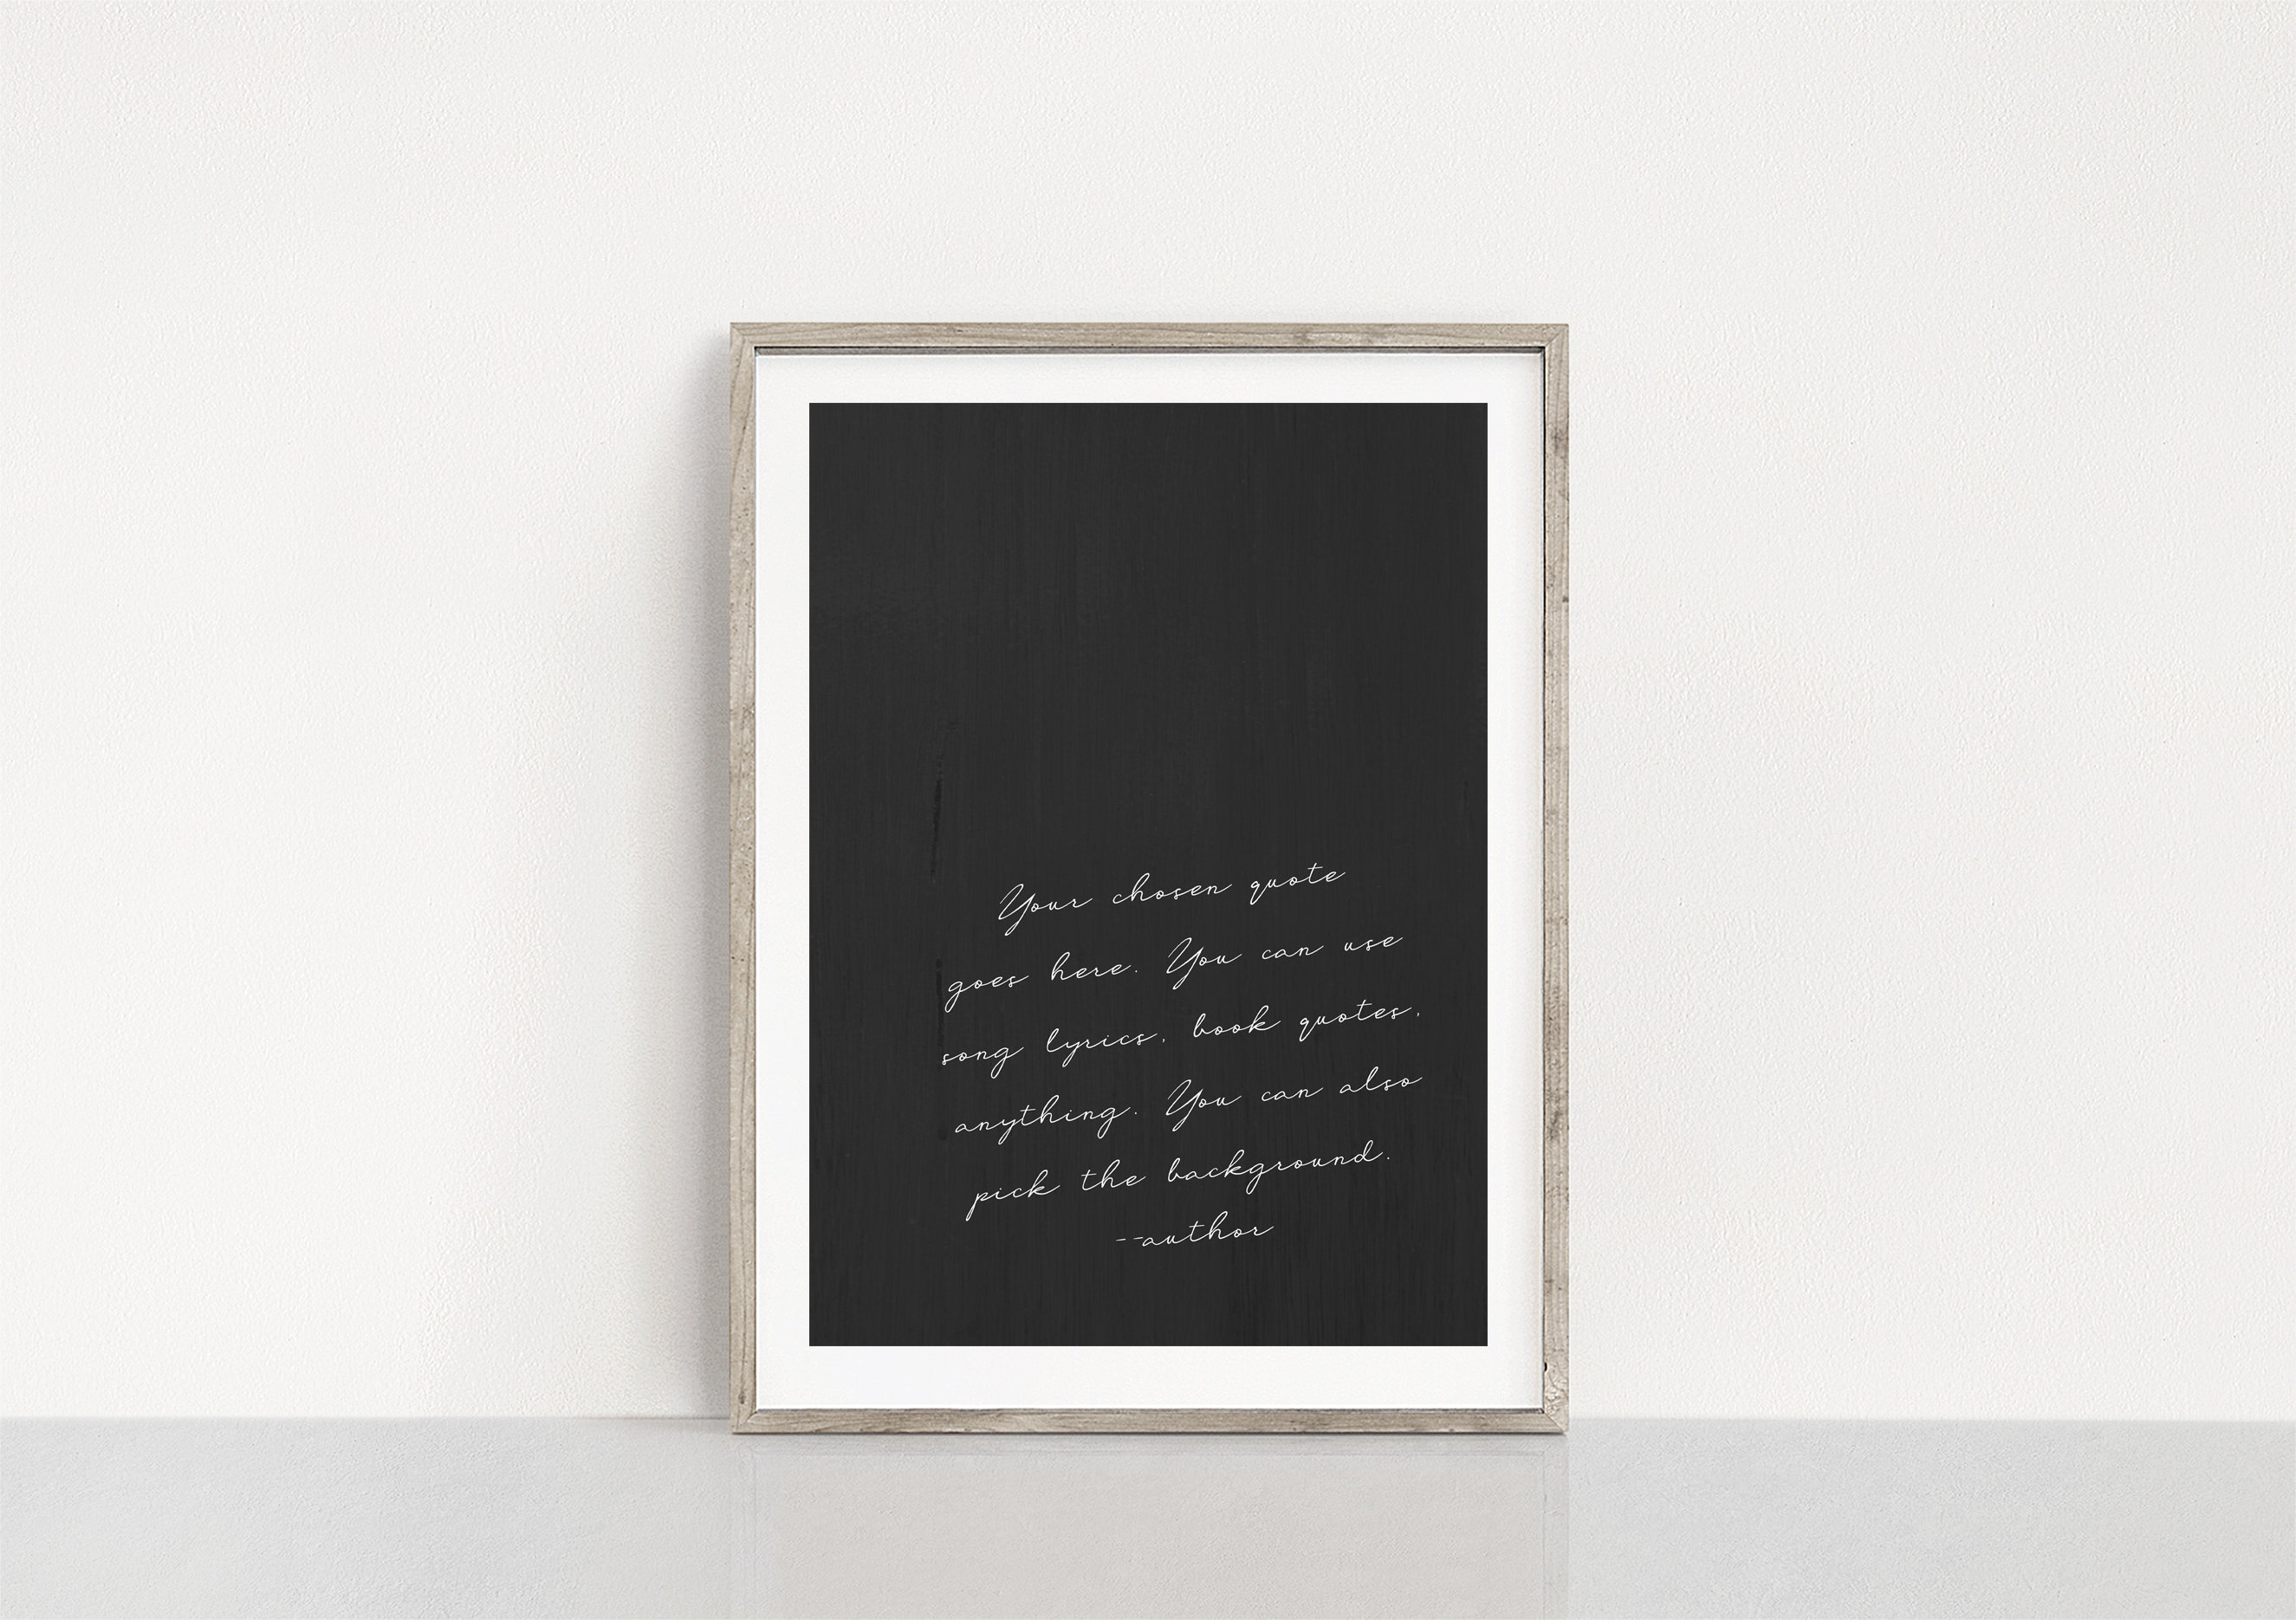 Your chosen quote
goes here. You can use
song lyrics, book quotes,
anything. You can also
pick the background.
--author